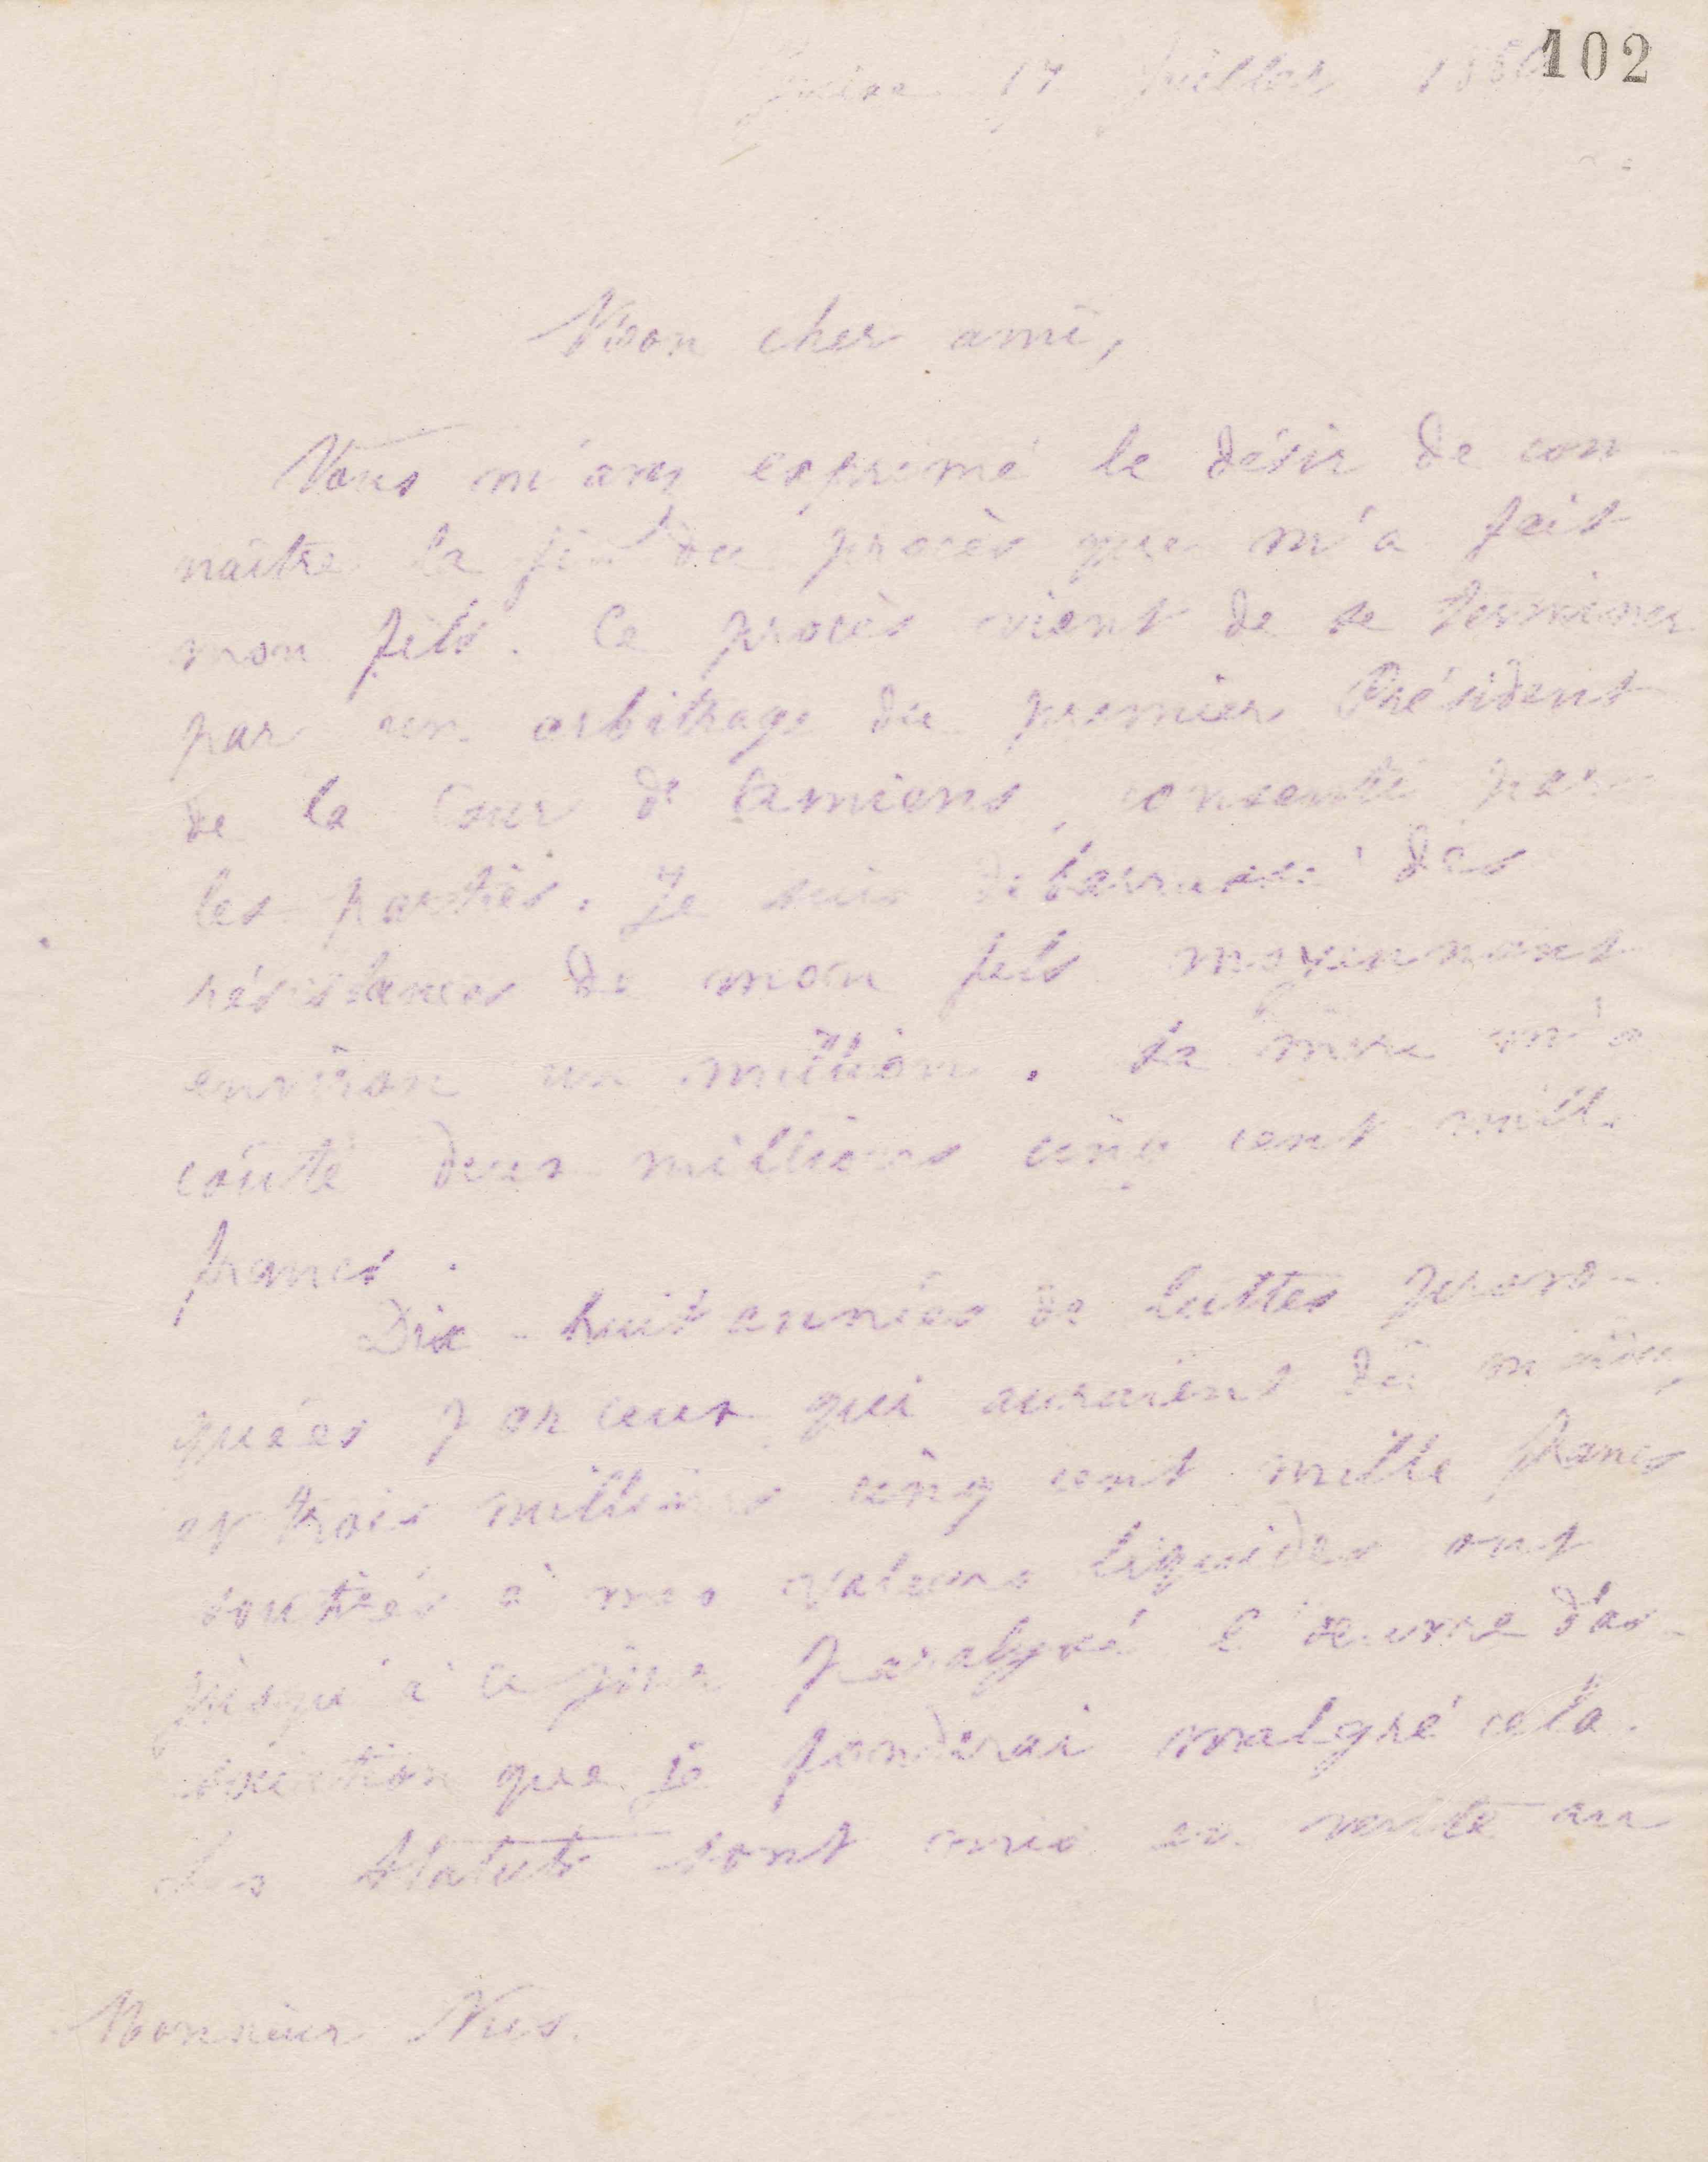 102
Guise 17 Juillet
Mon cher ami,
Vous m'avez exprimé le désir de con
naître la fin du procès que m'a fait
mon fils. Ce procès vient de se terminer
par un arbitrage du premier Président
de la Cour d'Amiens, consenti par
les parties. Je suis débarrassé des
résistances de mon fils moyennant
environ un million. La mère m'a
coûté deux millions cinq cent mille
francs.
Dix-huit années de luttes provo-
quées par ceux qui auraient dû m'aider,
et trois millions cinq cent mille francs
soutirés à mes valeurs liquides ont
jusqu'à ce jour paralysé l'œuvre d'as-
sociation que je fonderai malgré cela.
Les statuts sont mis en vente au
Monsieur Nus.